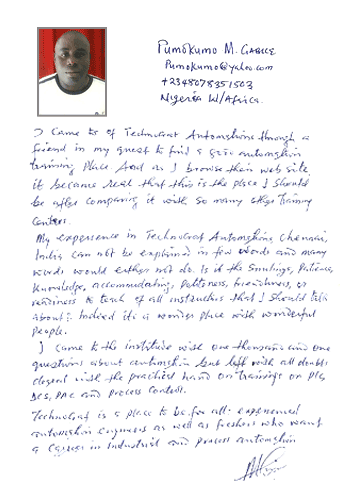 Pumokumo M. Gabice
Pumokumo@yahoo.com
+2348078351503
Nigeria W/Africa.
I came to of Technocrat Automations through a
friend in my quest to find a good automation
training place And as I browse their web site,
it became real that this is the place I should
be after comparing it with so many other training
centers.
My experience in Technocrat Automations, Chennai,
India can not be explained in few words and many
words would either not do. Is it the smilings, patience,
knowledge, accommodating, politeness, friendliness, or
readiness to teach of all instructors that I should talk
about? Indeed its a wonder place with wonderful
people.
I came to the institute with one thousand and one
questions about automation but left with all doubts
cleared with the practical hand on trainings on PLC,
DCS, PAC and process control.
Technocrat is a place to be for all experienced
automation engineers as well as freshers who want
a career in Industrial and process automation